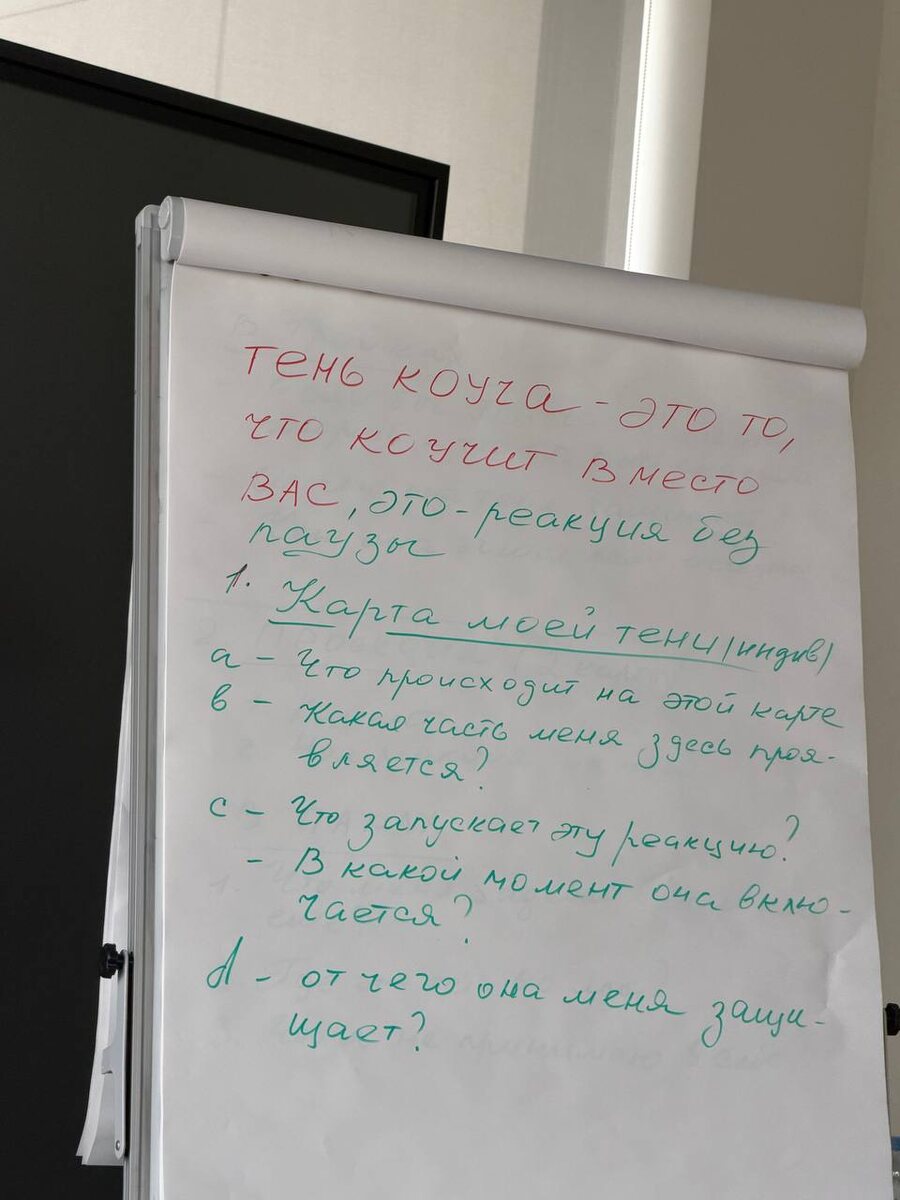 тень коуча - это то,
что коучит вместо
вас, это - реакция без
паузы
1. Карта моей тени (индив)
а - Что происходит на этой карте
в - Какая часть меня здесь проя-
вляется?
с - Что запускает эту реакцию?
- В какой момент она вклю-
чается?
d - от чего она меня защи-
щает?